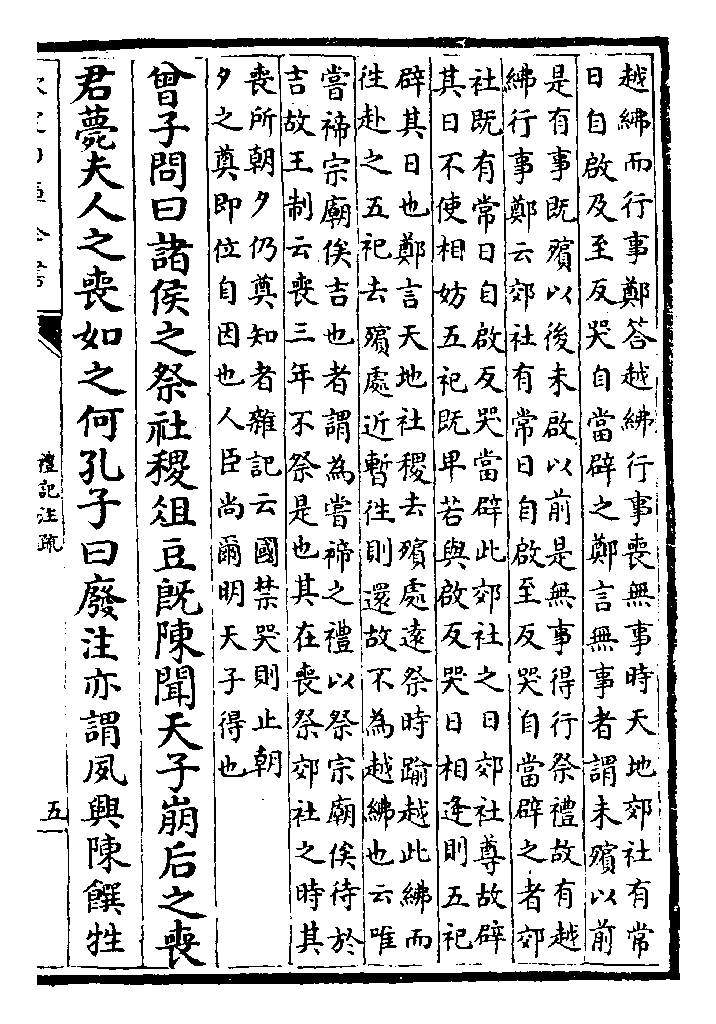 越紼而行事鄭答越紼行事喪無事時天地郊社有常
日自啟及至反哭自當辟之鄭言無事者謂未殯以前
是有事既殯以後未啟以前是無事得行祭禮故有越
紼行事鄭云郊社有常日自啟至反哭自當辟之者郊
社既有常日自啟反哭當辟此郊社之日郊社尊故辟
其日不使相妨五祀既早若與啟反哭日相逢則五祀
辟其日也鄭言天地社稷去殯處遠祭時踰越此紼而
徃赴之五祀去殯處近暫徃則還故不為越紼也云唯
嘗禘宗廟俟吉也者謂為嘗禘之禮以祭宗廟俟待於
吉故王制云喪三年不祭是也其在喪祭郊社之時其
喪所朝夕仍奠知者雜記云國禁哭則止朝
夕之奠即位自因也人臣尚爾明天子得也
曾子問曰諸侯之祭社稷俎豆既陳聞天子崩后之喪
君薨夫人之喪如之何孔子曰廢注亦謂夙興陳饌牲
禮記注疏
五